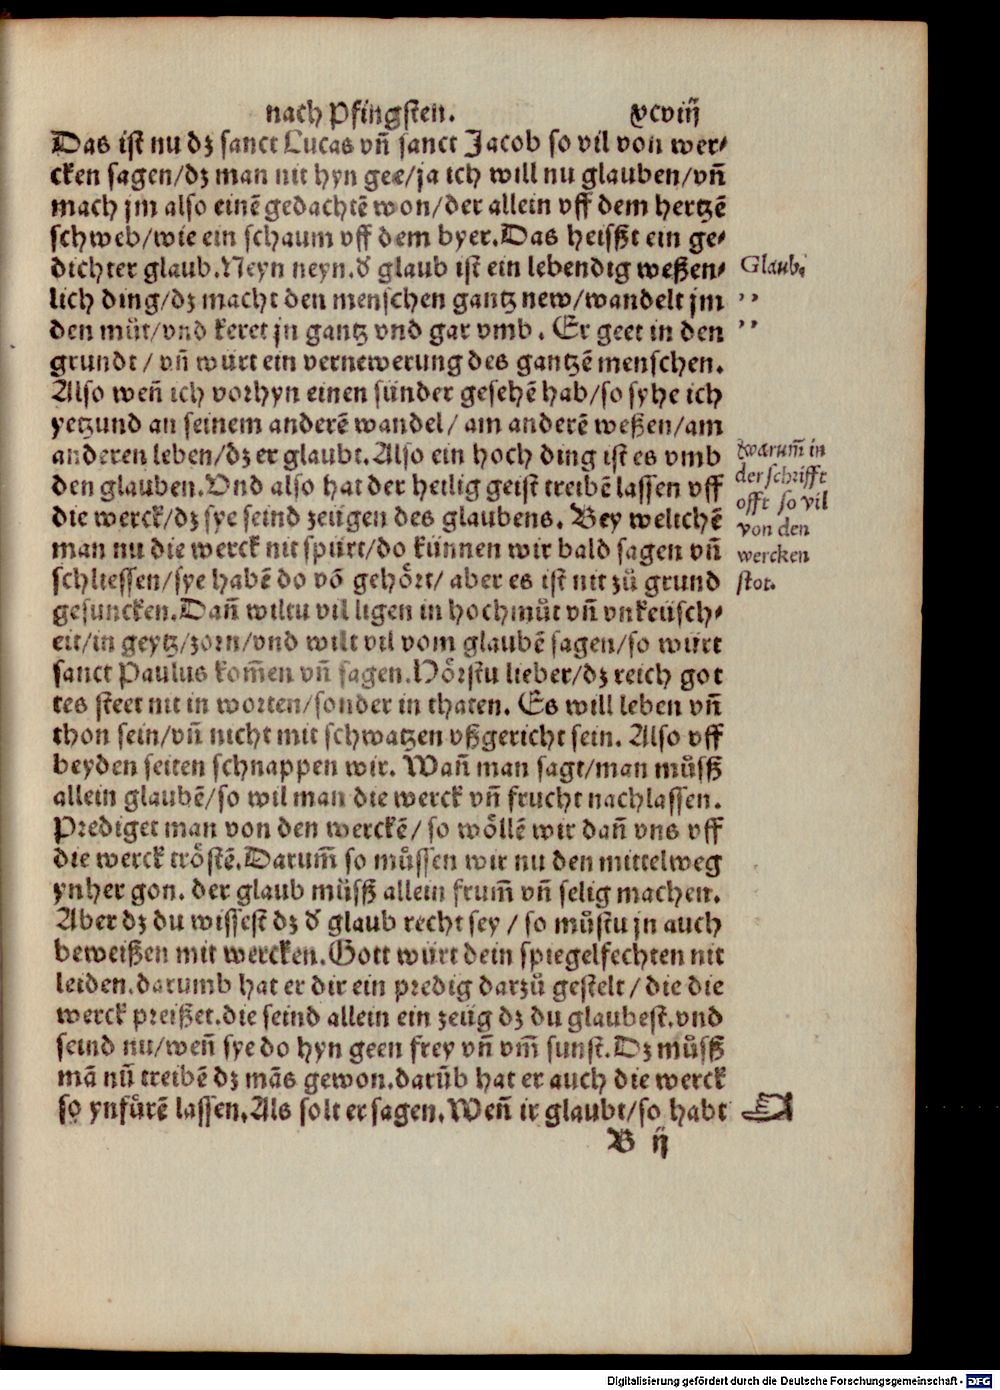 nach Pfingsten. xcviij
Das ist nu dz sanct Lucas vñ sanct Jacob so vil von wer⸗
cken sagen/dz man nit hyn gee/ja ich will nu glauben/vñ
mach jm also einē gedachtē won/der allein vff dem hertzē
schweb/wie ein schaum vff dem byer.Das heisßt ein ge⸗
dichter glaub.Neyn neyn.d̕ glaub ist ein lebendig weßen⸗
Glaub.
lich ding/dz macht den menschen gantz new/wandelt jm
,,
den můt/vnd keret jn gantz vnd gar vmb. Er geet in den
,,
grundt/ vñ würt ein vernewerung des gantzē menschen.
Also weñ ich vorhyn einen sünder gesehē hab/so syhe ich
yetzund an seinem anderē wandel/ am anderē weßen/am
anderen leben/dz er glaubt.Also ein hoch ding ist es vmb
Warum̄ in
den glauben.Vnd also hat der heilig geist treibē lassen vff
der schrifft
die werck/dz sye seind zeügen des glaubens. Bey welchē
offt so vil
man nu die werck nit spürt/do künnen wir bald sagen vñ
von den
schliessen/sye habē do võ gehört/ aber es ist nit zů grund
wercken
gesuncken.Dañ wiltu vil ligen in hochmůt vñ vnkeüsch⸗
stot.
eit/in geytz/zorn/vnd wilt vil vom glaubē sagen/so würt
sanct Paulus kom̄en vñ sagen.Hörstu lieber/dz reich got
tes steet nit in worten/sonder in thaten. Es will leben vñ
thon sein/vñ nicht mit schwatzen vßgericht sein. Also vff
beyden seiten schnappen wir. Wañ man sagt/man můsß
allein glaubē/so wil man die werck vñ frucht nachlassen.
Prediget man von den werckē/ so wöllē wir dañ vns vff
die werck tröstē.Darum̄ so müssen wir nu den mittelweg
ynher gon. der glaub můsß allein frum̄ vñ selig machen.
Aber dz du wissest dz d̕ glaub recht sey / so můstu jn auch
beweißen mit wercken.Gott würt dein spiegelfechten nit
leiden.darumb hat er dir ein predig darzů gestelt/ die die
werck preißet.die seind allein ein zeüg dz du glaubest.vnd
seind nu/weñ sye do hyn geen frey vñ vm̄ sunst.Dz můsß
mā nū treibē dz mās gewon.darūb hat er auch die werck
so ynfürē lassen.Als solt er sagen.Weñ ir glaubt/so habt
B ij
Digitalisierung gefördert durch die Deutsche Forschungsgemeinschaft - DFG